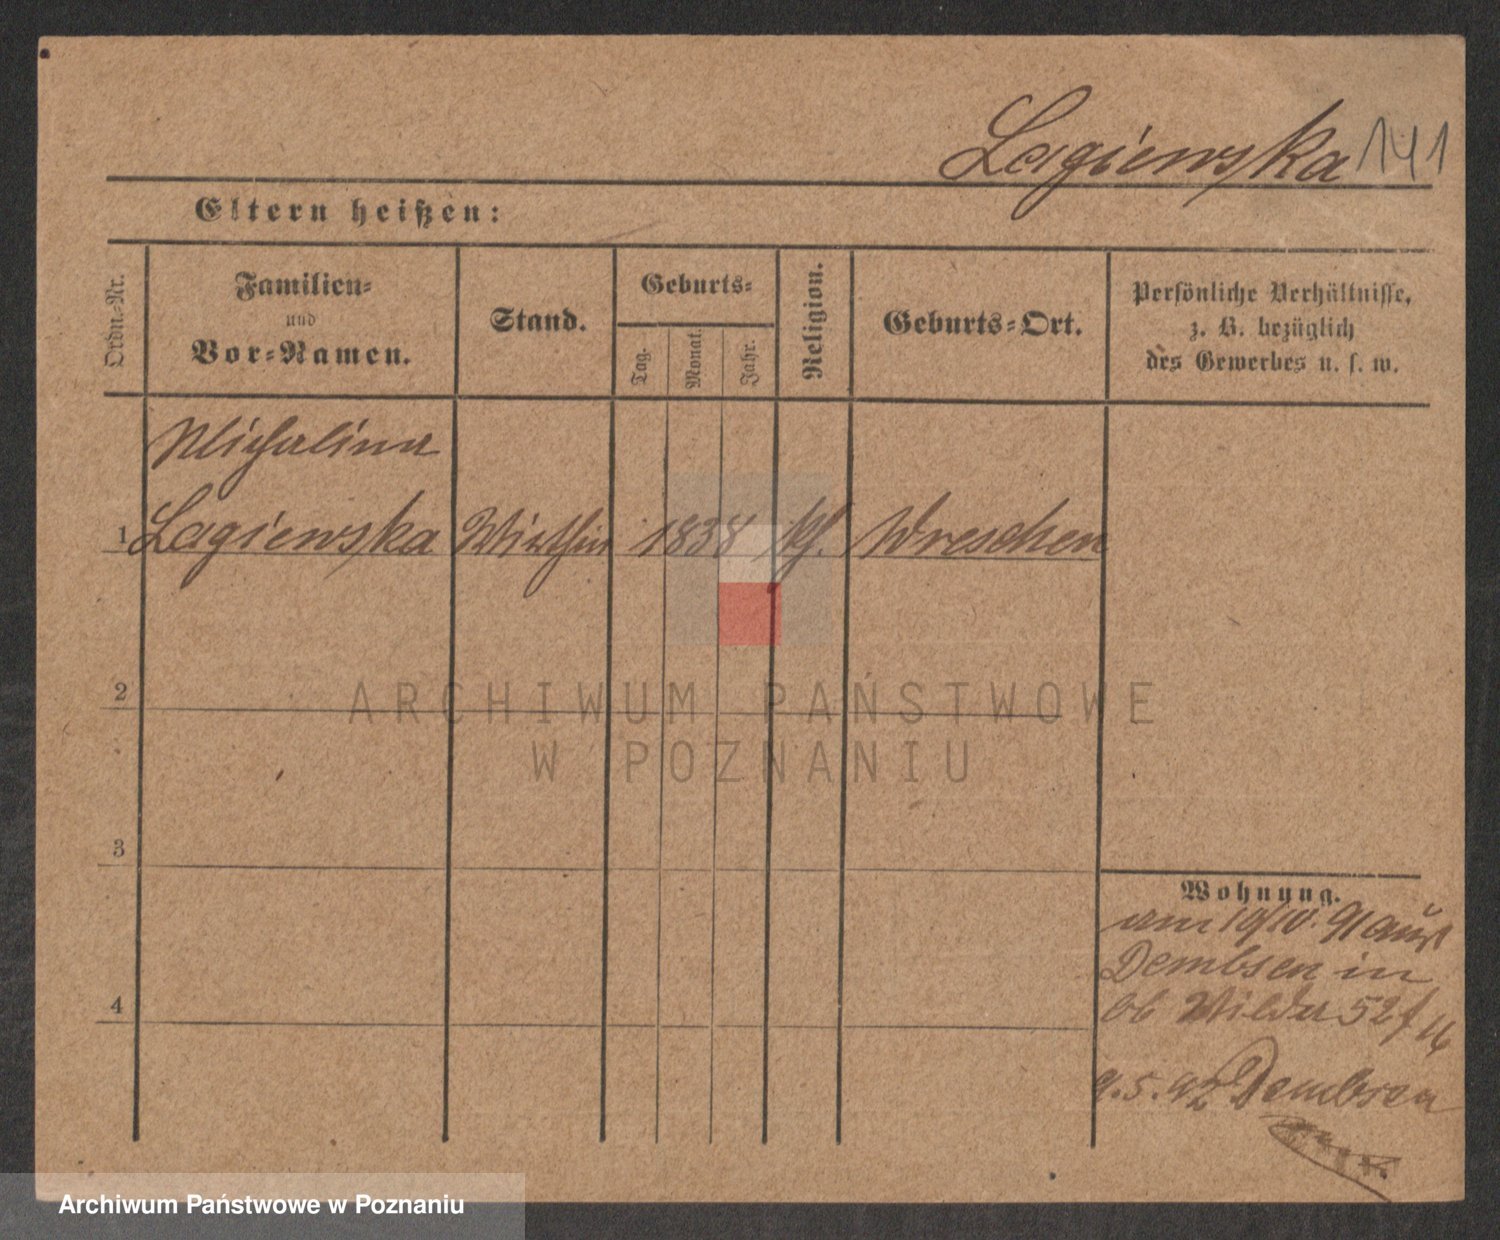 Lagiewska 141
Eltern heißen:
Ordn.-Nr.
Familien-
und
Vor-Namen.
Stand.
Geburts-
Tag.
Monat.
Jahr.
Religion.
Geburts-Ort.
Persönliche Verhältnisse,
z. B. bezüglich
des Gewerbes u. s. w.
Michalina
1 Lagiewska Wirthin 1838 kf. Wreschen
2
ARCHIWUM PAŃSTWOWE
W POZNANIU
3
4
Wohnung.
am 10/10. 91 aus
Dembsen in
ob Wilda 52
9.5.92 Dembsen
Archiwum Państwowe w Poznaniu